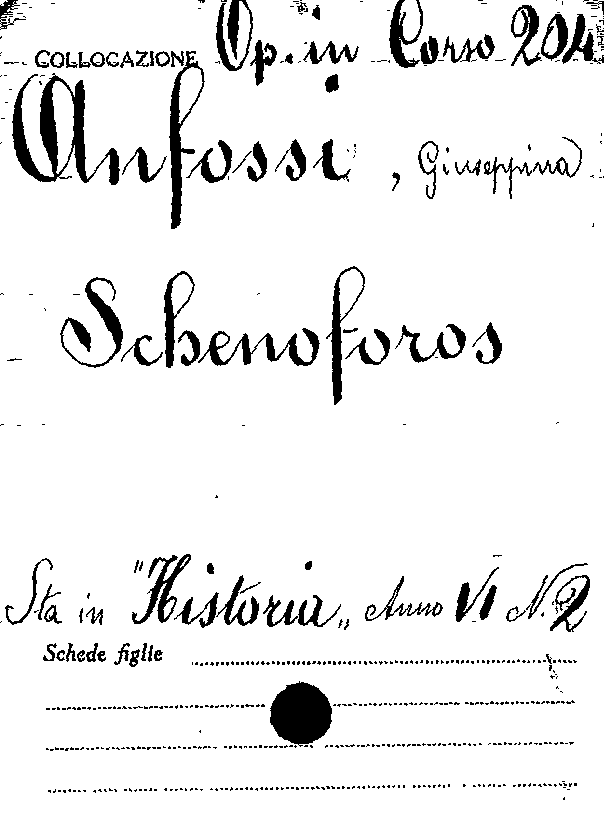 COLLOCAZIONE Op. in Corso 204
Anfossi, Giuseppina
Schenoforos
Sta in "Historia„ Anno VI N. 2
Schede figlie